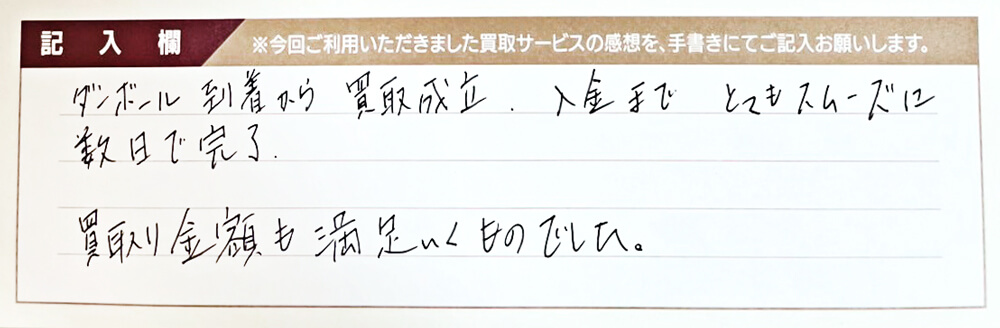 記入欄
※今回ご利用いただきました買取サービスの感想を、手書きにてご記入お願いします。
ダンボール到着から買取成立.入金まで とてもスムーズに
数日で完了.
買取り金額も満足いくものでした。